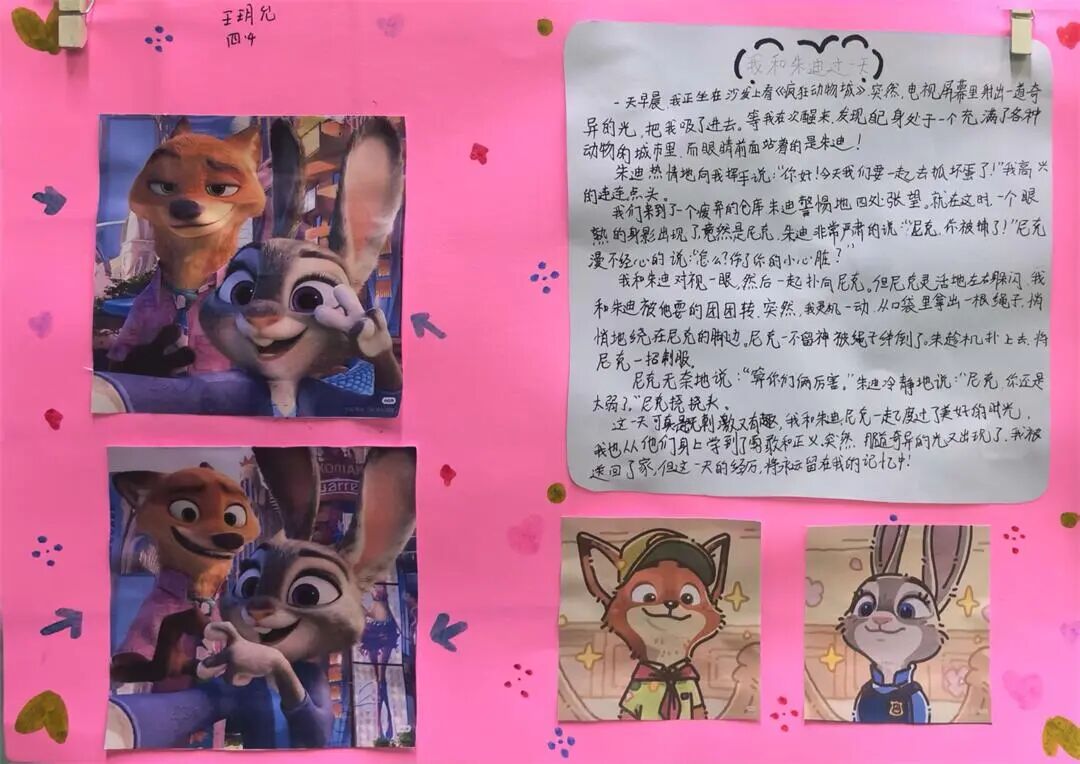 王玥允
四.4
我和朱迪过一天
一天早晨,我正坐在沙发上看《疯狂动物城》突然,电视屏幕里射出一道奇
异的光,把我吸了进去。等我在次醒来,发现自己身处于一个充满了各种
动物的城市里,而眼睛前面站着的是朱迪!
朱迪热情地向我挥手说:“你好!今天我们要一起去抓坏蛋了!”我高兴
的连连点头。
我们来到了一个疲弃的仓库朱迪警惕地四处张望。就在这时,一个眼
熟的身影出现了竟然是尼克,朱迪非常严肃的说:“尼克,你被捕了!”尼克
漫不经心的说:“怎么?伤了你的小心脏?”
我和朱迪对视一眼,然后一起扑向尼克。但尼克灵活地左右躲闪,我
和朱迪被他耍的团团转,突然,我灵机一动,从口袋里拿出一根绳子,悄
悄地绕在尼克的脚边。尼克一不留神被绳子绊倒了。朱趁机扑上去,将
尼克一招制服。
尼克无奈地说:“算你们俩厉害。”朱迪冷静地说:“尼克,你还是
太弱了。”尼克挠挠头。
这一天可真是既刺激又有趣,我和朱迪尼克一起度过了美好的时光,
我也从他们身上学到了勇敢和正义突然,那道奇异的光又出现了,我被
送回了家,但这一天的经历,将永远留在我的记忆中!